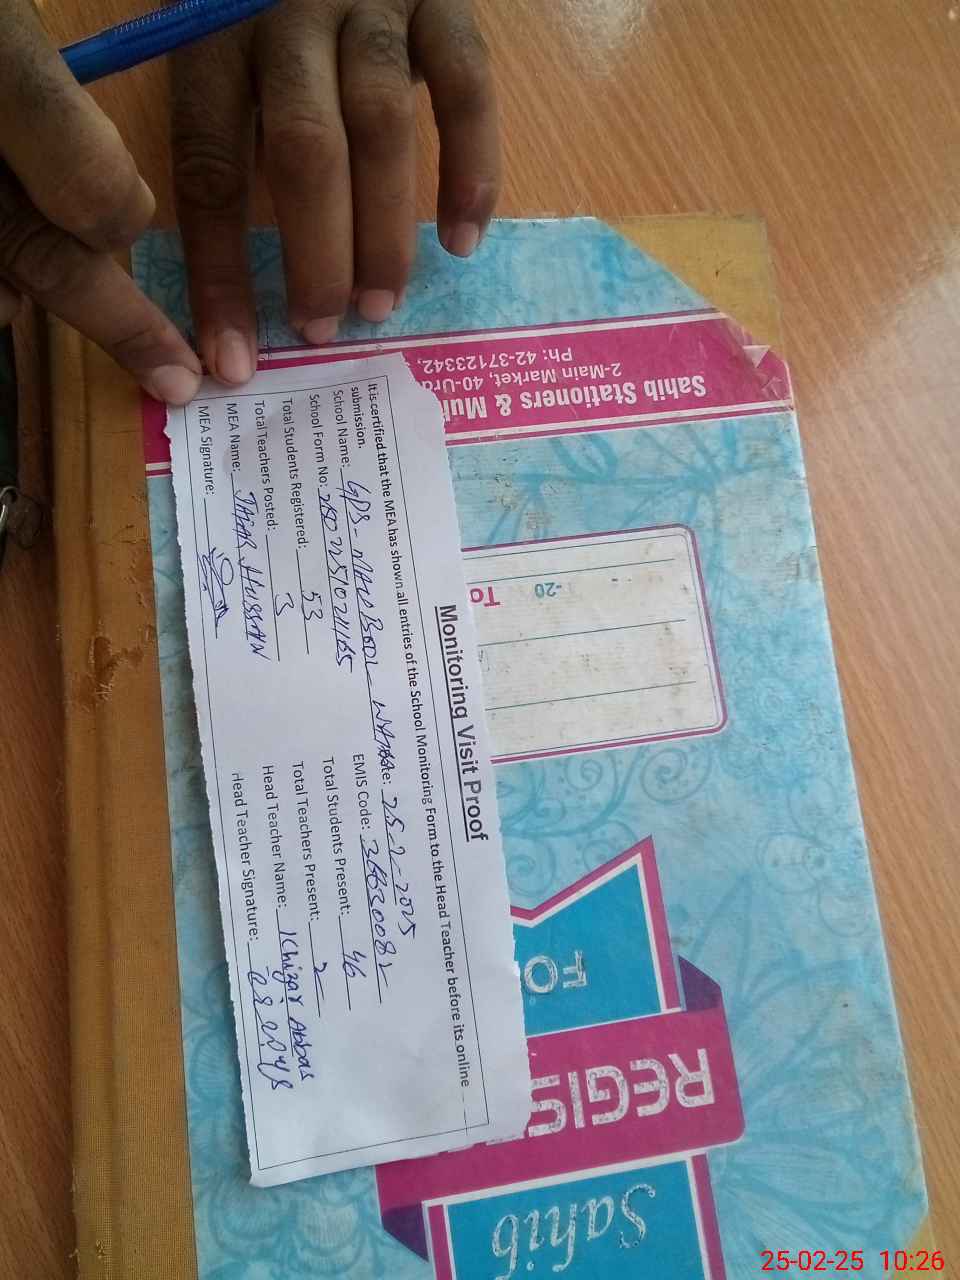 Monitoring Visit Proof
It is certified that the MEA has shown all entries of the School Monitoring Form to the Head Teacher before its online
submission.
School Name: GPS - MAQBOOL - Date: 25-2-2025
School Form No: EMIS Code:
Total Students Registered: 53 Total Students Present: 46
Total Teachers Posted: 3 Total Teachers Present: 2
MEA Name: HUSSAIN Head Teacher Name: Khizar Abbas
MEA Signature: Head Teacher Signature:
Sahib Stationers &
2-Main Market, 40-
Ph: 42-37123342,
-20
To
FO
REGIS
Sahib
25-02-25 10:26